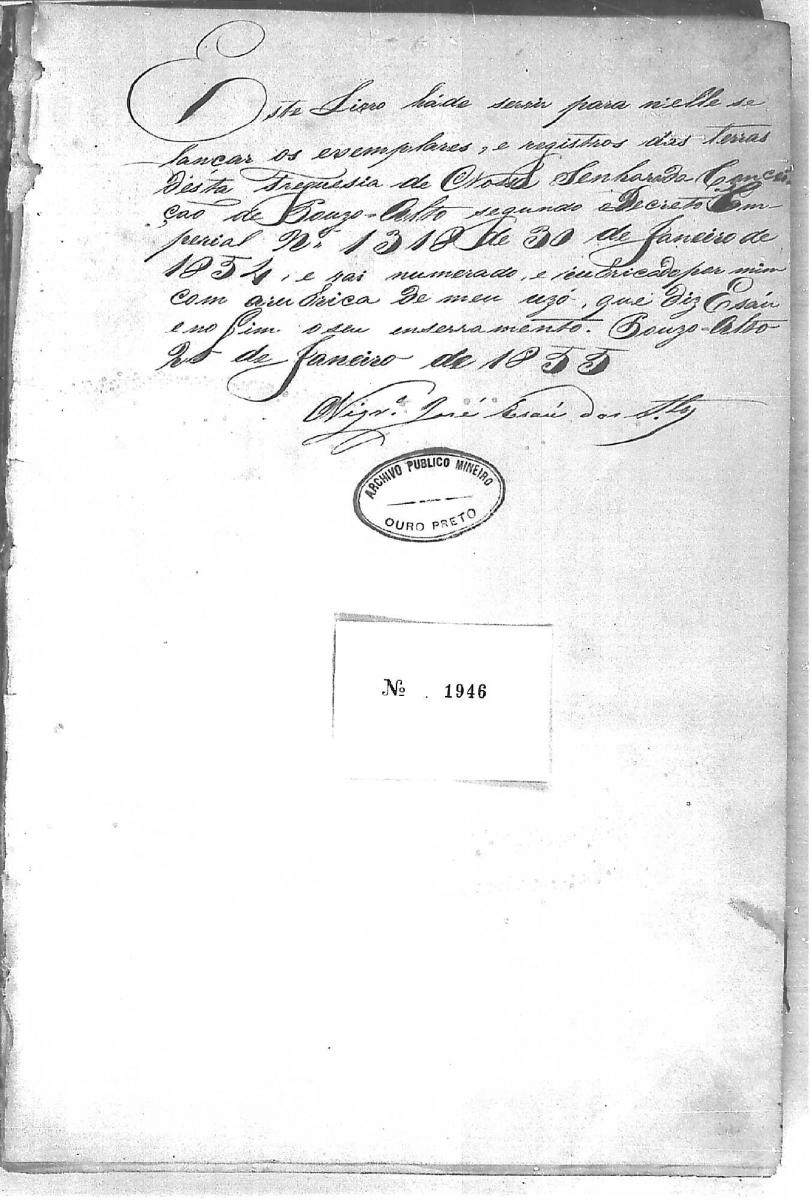 Este Livro háde servir para n'elle se
lançar os exemplares, e registros das terras
désta Freguesia de Nossa Senhora da Concei
ção de Pouzo-Alto segundo o Decreto Im-
perial Nº 1318 de 30 de Janeiro de
1854, e vai numerado, e rubricado per mim
com a rubrica de meu uzó, que diz Esaú
e no fim o seu enserramento. Pouzo-Alto
25 de Janeiro de 1855
Vigrº José Esaú dos
ARCHIVO PUBLICO MINEIRO
OURO PRETO
Nº . 1946